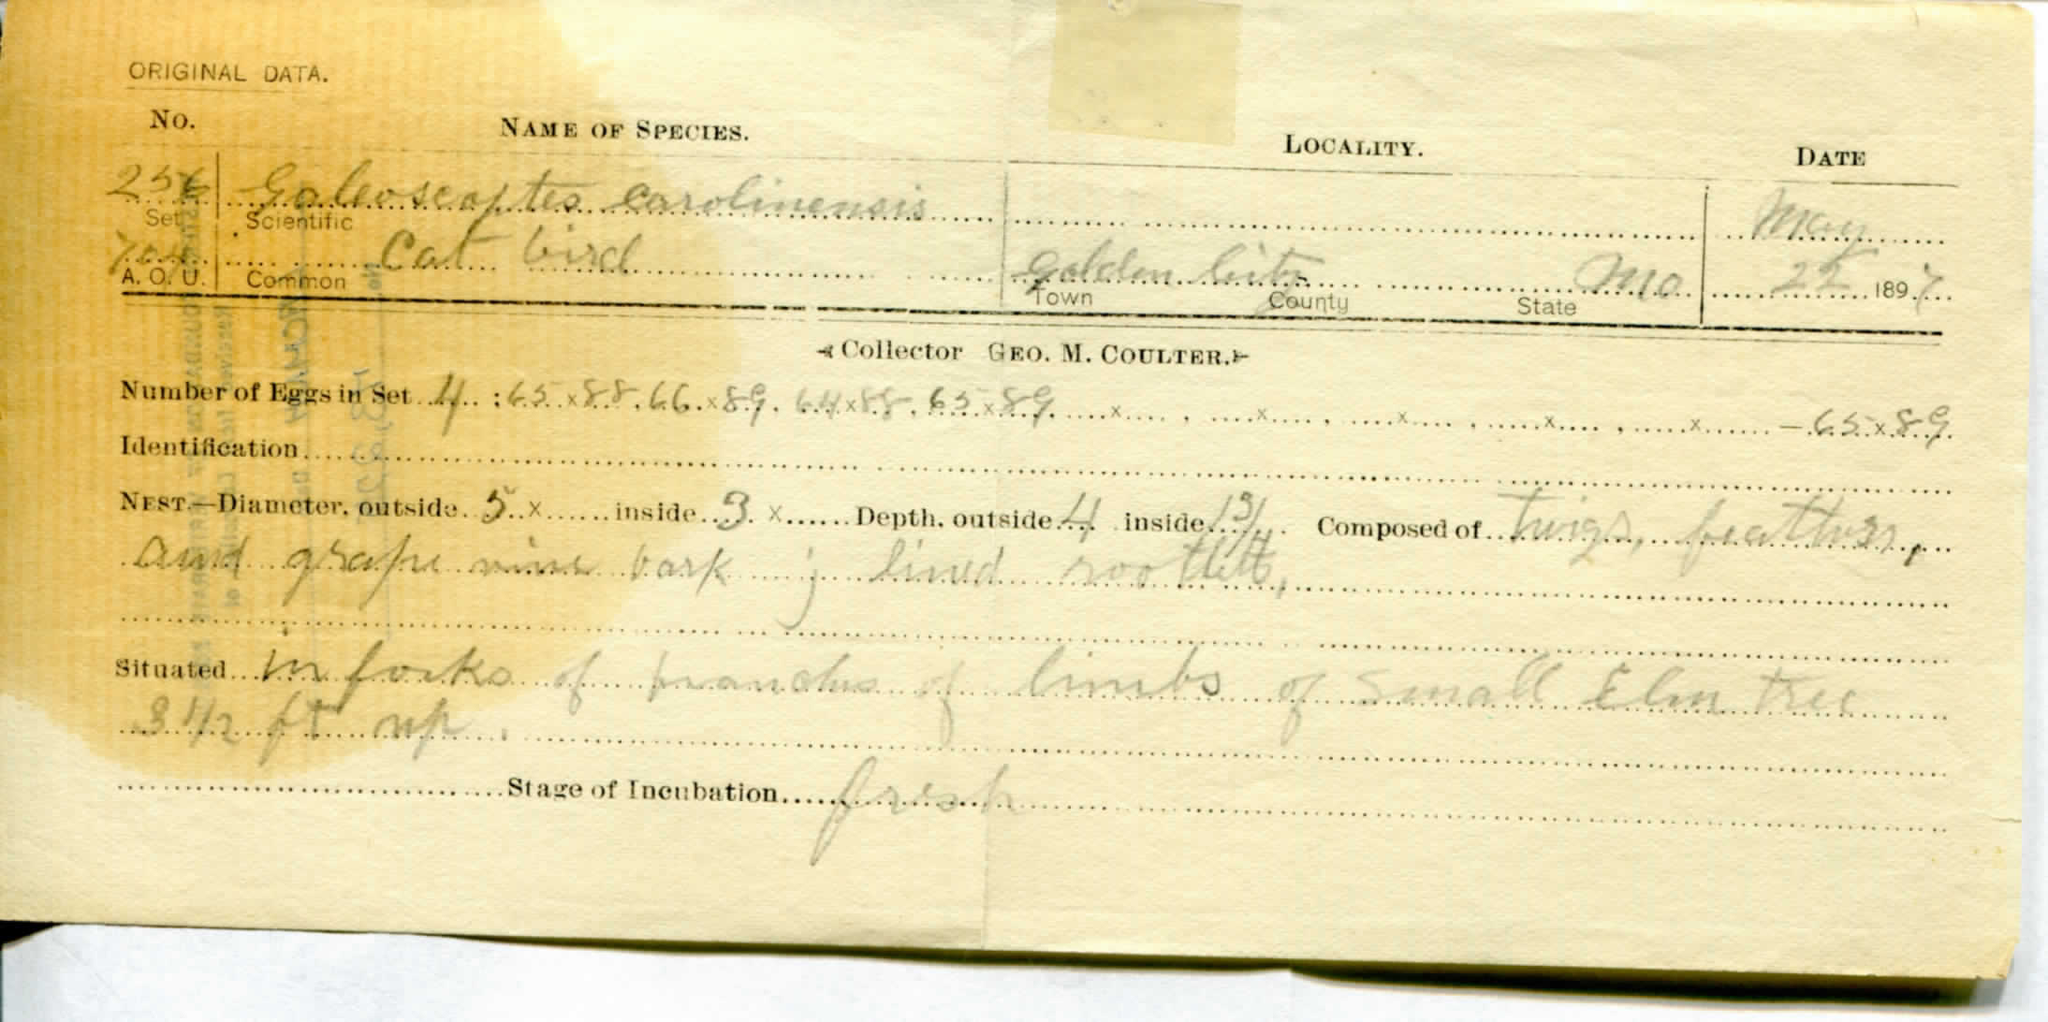 ORIGINAL DATA.
No. NAME OF SPECIES. LOCALITY. DATE
256 Galeoscoptes carolinensis May
Set Scientific
704 Cat bird Golden City Mo 22 1897
A. O. U. Common Town County State
Collector GEO. M. COULTER.
Number of Eggs in Set 4 : 65 x 88, 66 x 89, 64 x 88, 65 x 89 x , x , x , x , x — 65 x 89
Identification
NEST.—Diameter, outside 5 x inside 3 x Depth, outside 4 inside 1 3/4 Composed of twigs, feathers,
and grape vine bark ; lined rootlets,
Situated in forks of branches of limbs of small Elm tree
3 1/2 ft up.
Stage of Incubation fresh